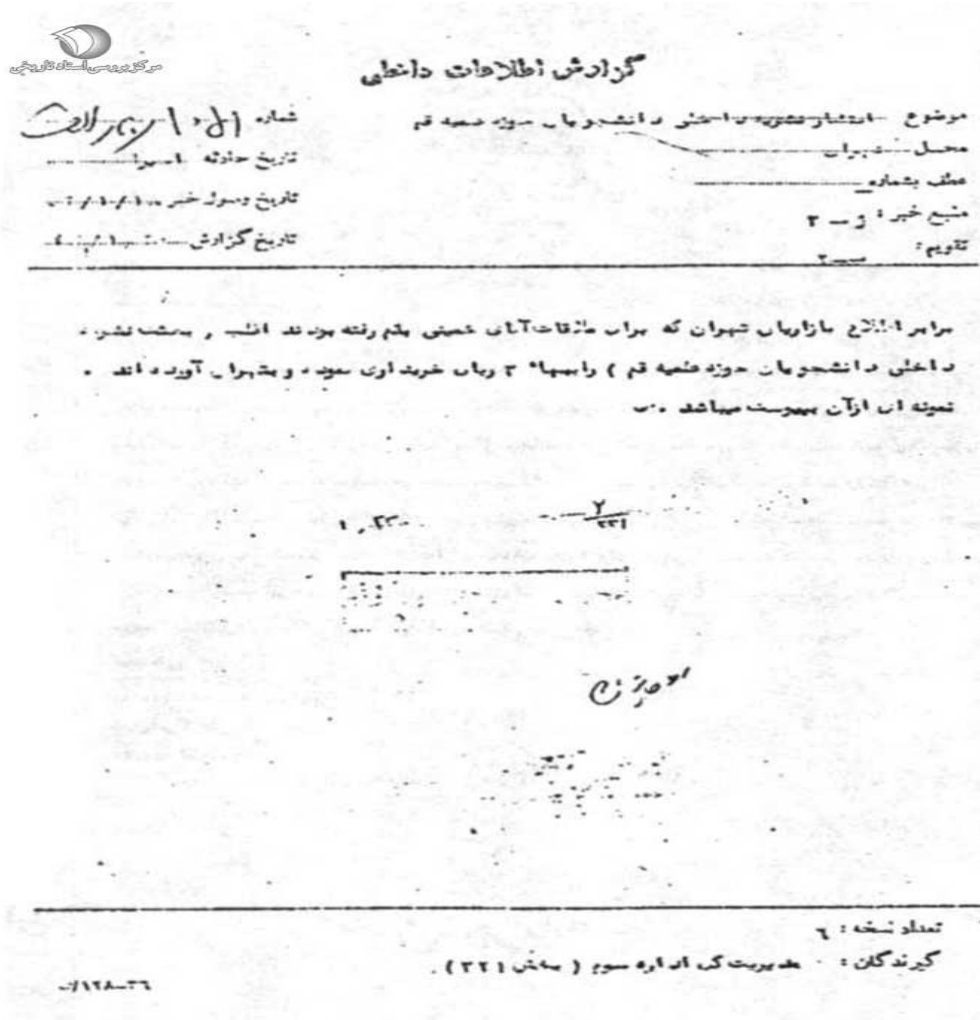 مرکز بررسی اسناد تاریخی
گزارش اطلاعات داخلی
موضوع انتشار نشریه داخلی دانشجویان حوزه علمیه قم
شماره
محل تهران
تاریخ حادثه اخیرا
عطف بشماره
تاریخ وصول خبر
منبع خبر :
تاریخ گزارش
تقویم :
برابر اطلاع بازاریان تهران که برای ملاقات آقای خمینی بقم رفته بودند اغلب ( بعثت نشریه
داخلی دانشجویان حوزه علمیه قم ) را ببهاء ۳ ریال خریداری نموده و بتهران آورده اند .
نمونه ای ازآن پیوست میباشد
۲
۳۲۱
تعداد نسخه : ۶
گیرندگان : مدیریت کل اداره سوم ( بخش ۳۲۱ ) .
۳۶–۱۲۸/